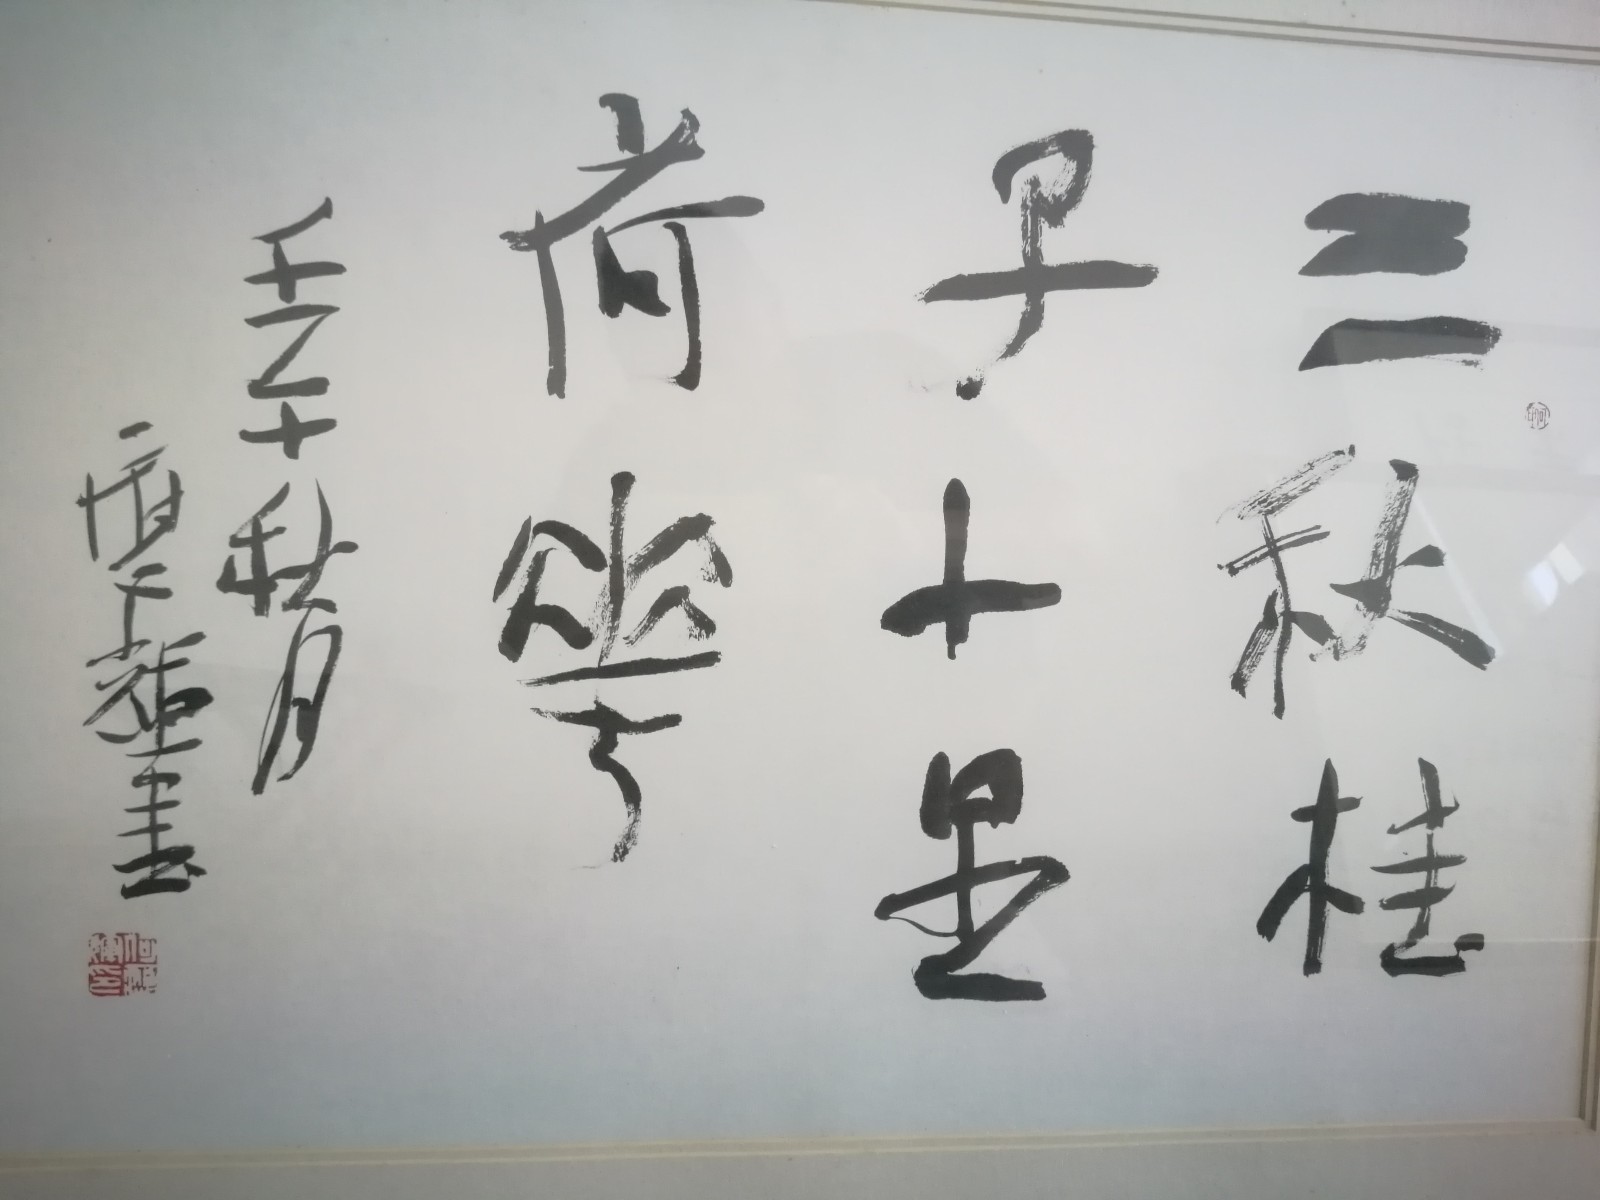 三秋桂
子十里
荷花
壬午秋月